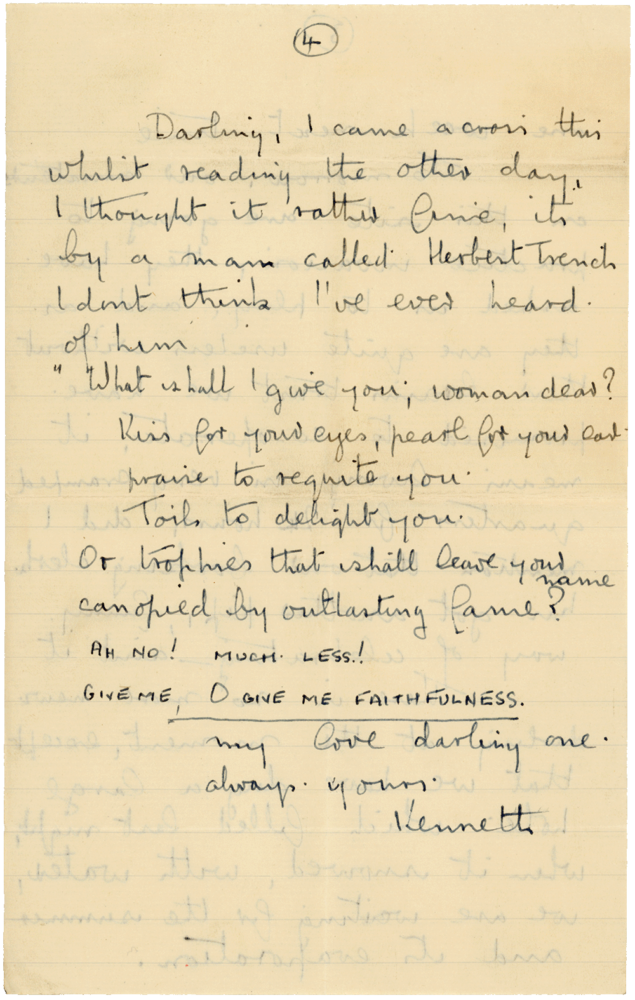 4
Darling, I came across this
whilst reading the other day,
I thought it rather fine, its
by a man called Herbert Trench
I dont think I've ever heard.
of him
" "What shall I give you; woman dear?
Kiss for your eyes, pearl for your ear
praise to requite you.
Toils to delight you.
Or trophies that shall leave your name
canopied by outlasting fame?
AH NO! MUCH. LESS.!
GIVE ME, O GIVE ME FAITHFULNESS.
my love darling one.
always. yours.
Kenneth